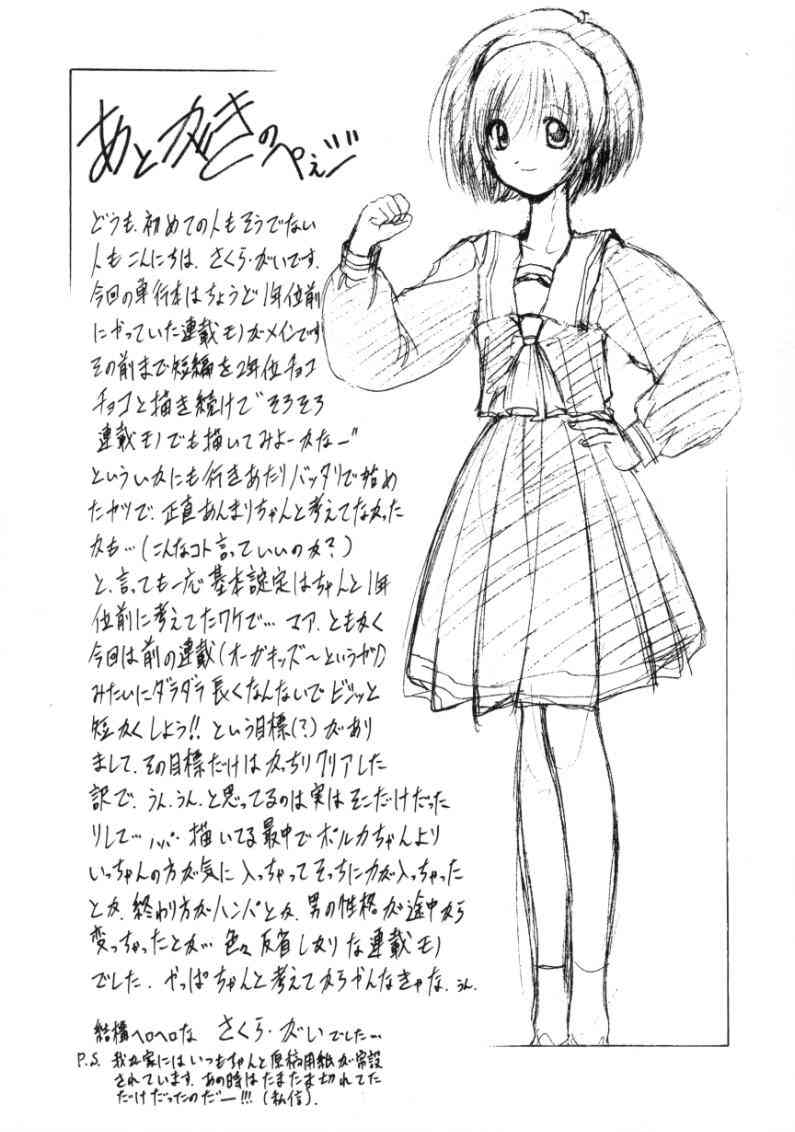 あとがきのぺぇジ
どうも、初めての人もそうでない
人もこんにちは、さくら・がいです。
今回の単行本はちょうど1年位前
にやっていた連載モノがメインです
その前まで短編を2年位チョコ
チョコと描き続けて“そろそろ
連載モノでも描いてみよーかなー”
といういかにも行きあたりバッタリで始め
たヤツで、正直あんまりちゃんと考えてなかった
かも…(こんなコト言っていいのか?)
と、言っても一応基本設定はちゃんと1年
位前に考えてたワケで…マア、ともかく
今回は前の連載(オーガキッズ〜というヤツ)
みたいにダラダラ長くなんないでビシッと
短かくしよう!!という目標(?)があり
まして、その目標だけはかっちりクリアした
訳で、うん、うん、と思ってるのは実はそこだけだった
りして…ハハ・描いてる最中でポルカちゃんより
いっちゃんの方が気に入っちゃってそっちに力が入っちゃった
とか、終わり方がハンパとか、男の性格が途中から
変っちゃったとか…色々反省しきりな連載モノ
でした。やっぱちゃんと考えてからかんなきゃな、うん。
結構ヘロヘロな さくら・がいでした…
P.S. 我が家にはいつもちゃんと原稿用紙が常設
されています。あの時はたまたま切れてた
だけだったのだー!!!(私信).